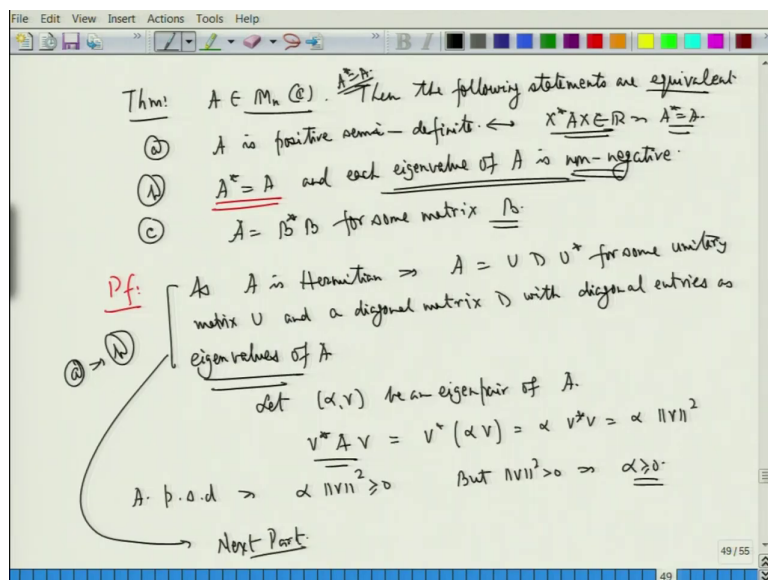 File Edit View Insert Actions Tools Help
A* = A.
Thm: A ∈ Mn(C). Then the following statements are equivalent.
(a) A is positive semi-definite. ↔ x*Ax ∈ R ⇒ A* = A.
(b) A* = A and each eigenvalue of A is non-negative.
(c) A = B*B for some matrix B.
Pf: As A is Hermitian ⇒ A = U D U* for some unitary
matrix U and a diagonal matrix D with diagonal entries as
(a) ⇒ (b) eigenvalues of A
Let (α, v) be an eigenpair of A.
v* A v = v* (α v) = α v*v = α ||v||²
A. p.s.d ⇒ α ||v||² ≥ 0 But ||v||² > 0 ⇒ α ≥ 0.
Next Part.
49 / 55
49